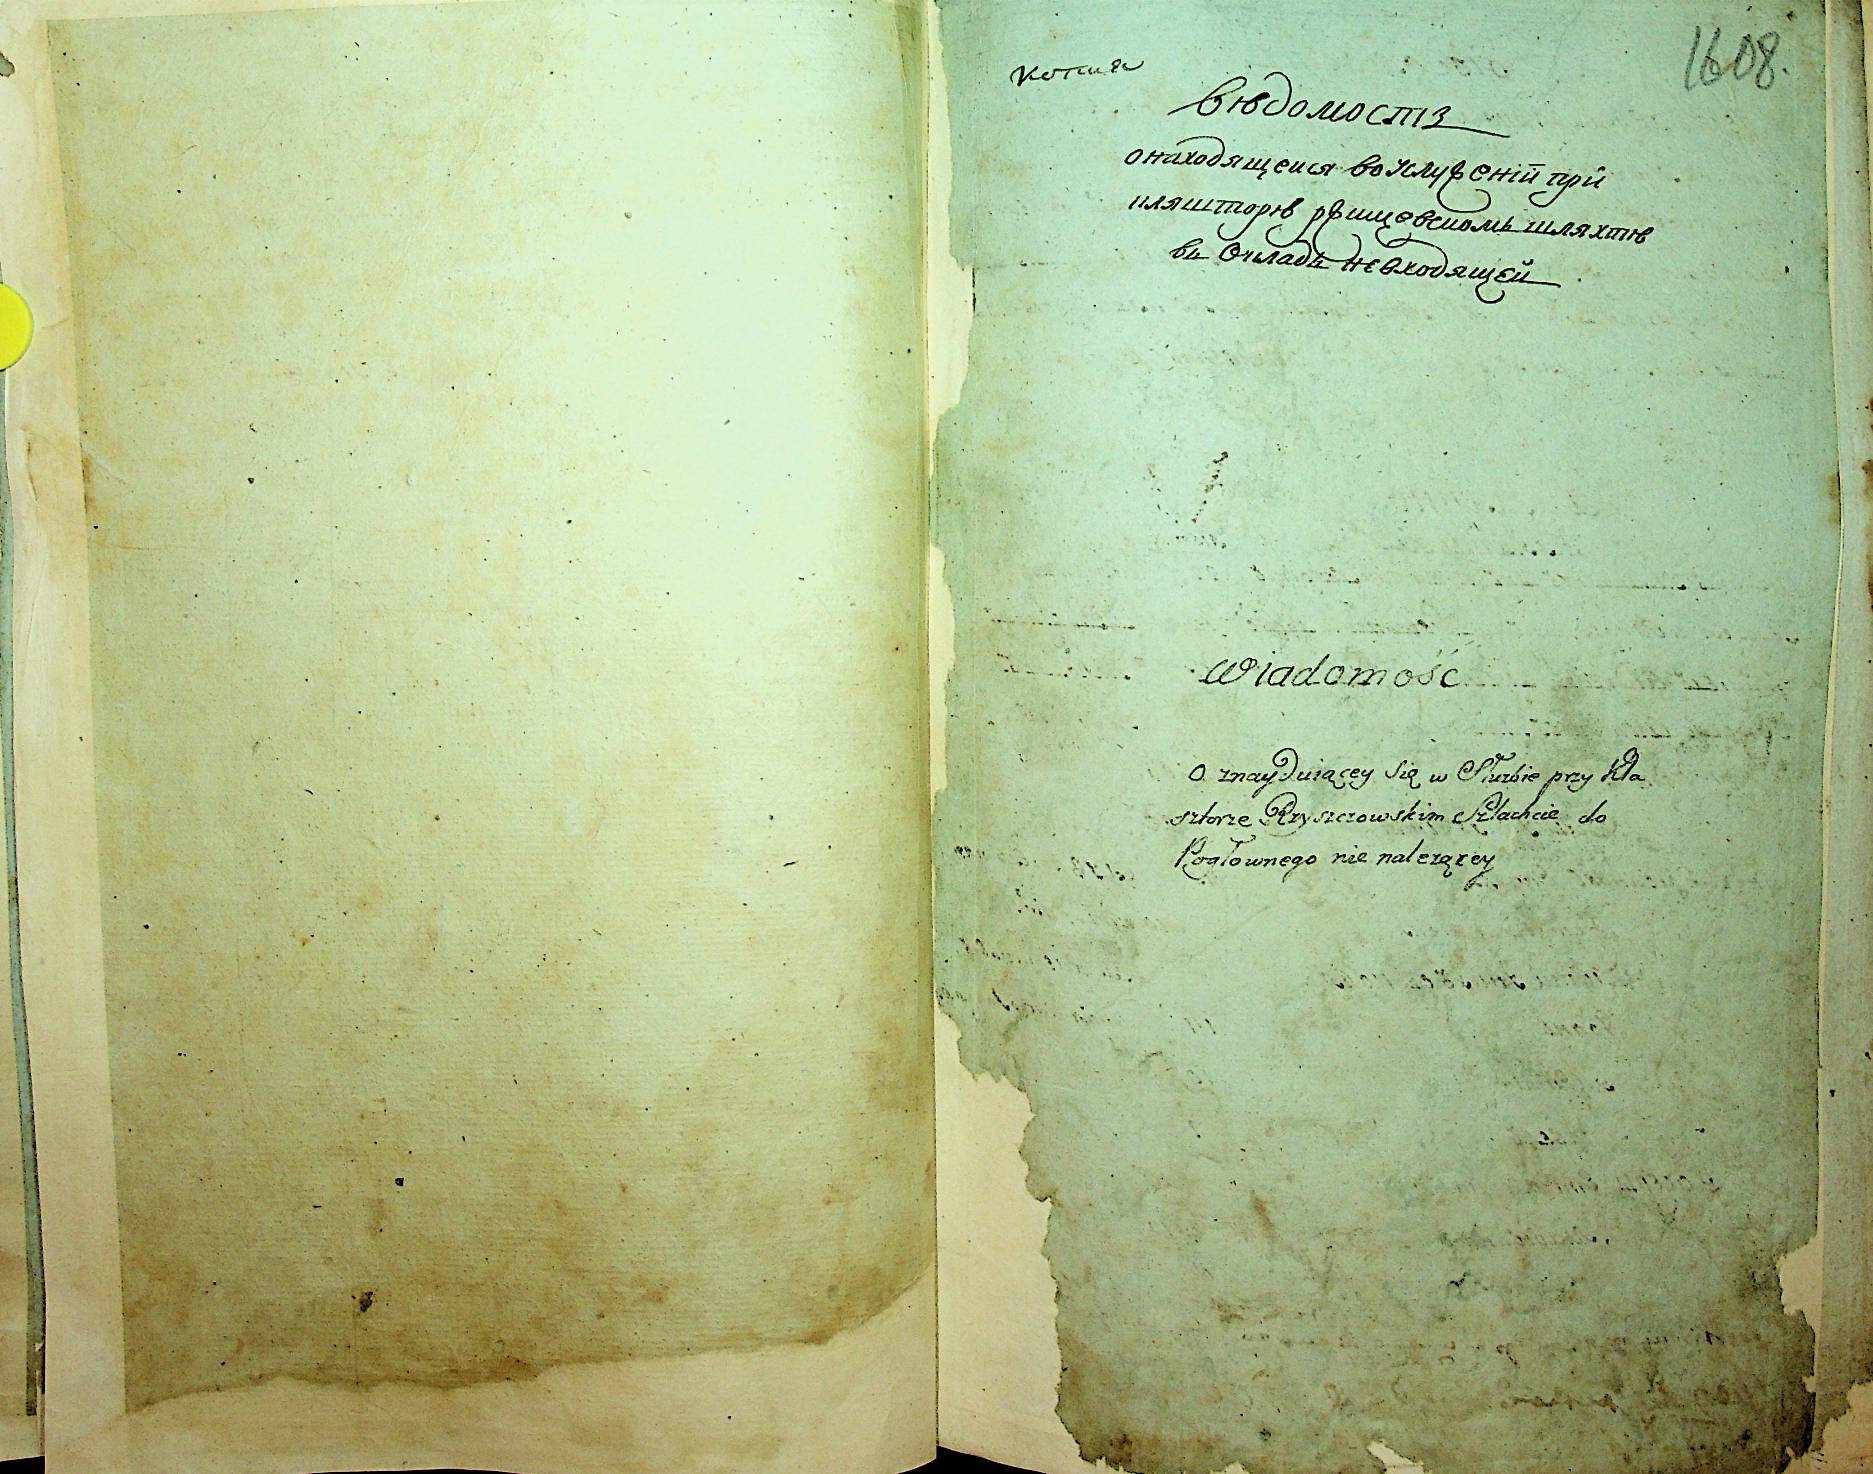 1608.
копия
Вѣдомостъ
онаходящеися воуслуженій при
кляшторѣ ржищевскомъ шляхтѣ
въ Окладъ невходящей
Wiadomość
O znayduiącey się w Służbie przy Kla
sztorze Rzyszczowskim Szlachcie do
Pogłownego nie należącey